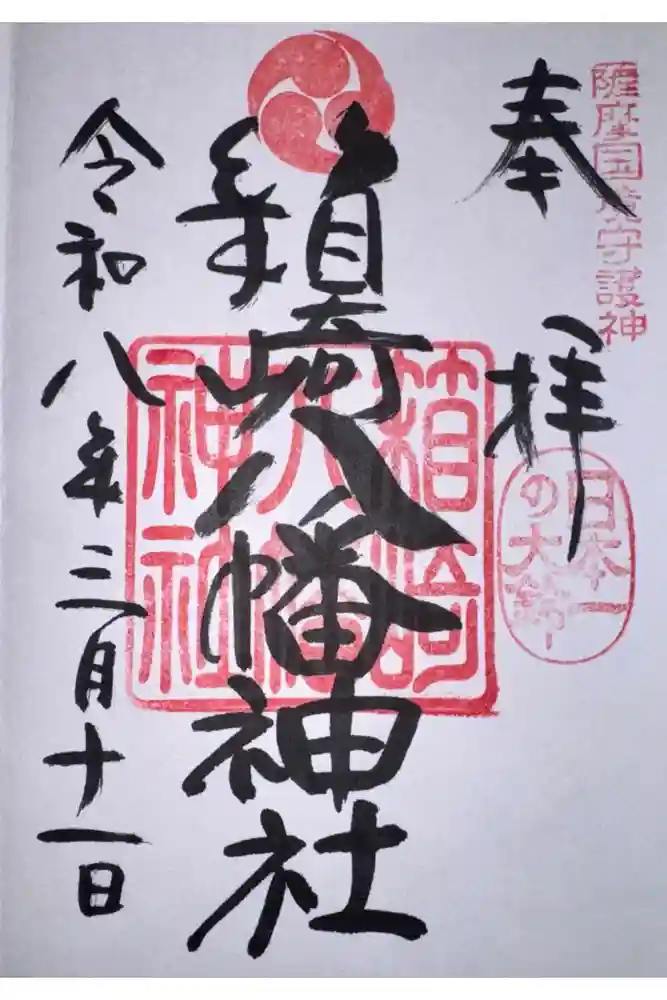 薩摩国境守護神
奉拝
日本一
の大鈴
箱崎八幡神社
箱崎
八幡
神社
令和八年三月十一日